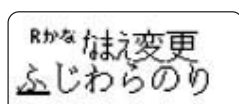 Rかな なまえ変更
ふじわらのり